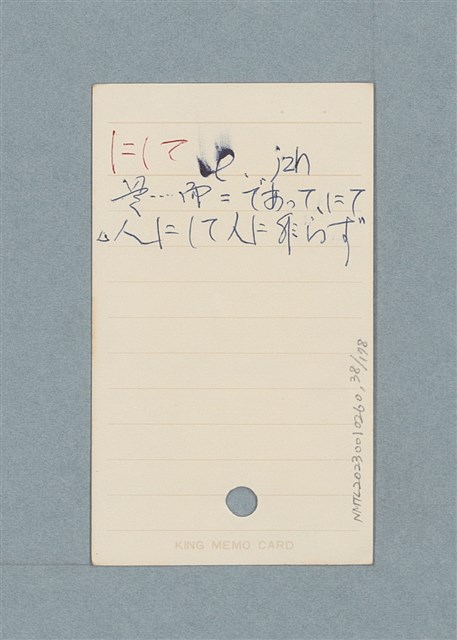 にして e. jzh
是……而=であって、にて
△人にして人に非らず
NMTL20230010260, 38/198
KING MEMO CARD